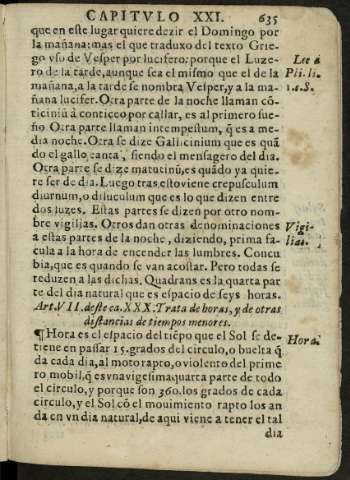 CAPITVLO XXI. 635
que en este lugar quiere dezir el Domingo por
la mañana: mas el que traduxo del texto Grie-
go vso de Vesper por lucifero, porque el Luze-
ro de la tarde, aunque sea el mismo que el de la
mañana, a la tarde se nombra Vesper, y a la ma-
ñana lucifer. Otra parte de la noche llaman cõ-
ticiniũ à conticeo por callar, es al primer sue-
ño Otra parte llaman intempestum, q̃ es a me-
dia noche. Otra se dize Gallicinium que es quã
do el gallo canta, siendo el mensagero del dia.
Otra parte se dize matutinũ, es quãdo ya quie-
re ser de dia. Luego tras esto viene crepusculum
diurnum, o diluculum que es lo que dizen entre
dos luzes. Estas partes se dizen por otro nom-
bre vigilias. Otros dan otras denominaciones
a estas partes de la noche, diziendo, prima fa-
cula a la hora de encender las lumbres. Concu
bia, que es quando se van acostar. Pero todas se
reduzen a las dichas. Quadrans es la quarta par
te del dia natural que es espacio de seys horas.
Art. VII. deste ca. XXX. Trata de horas, y de otras
distancias de tiempos menores.
¶ Hora es el espacio del tiẽpo que el Sol se de-
tiene en passar 15. grados del circulo, o buelta q̃
da cada dia, al moto rapto, o violento del prime
ro mobil, q̃ es vna vigesima quarta parte de todo
el circulo, y porque son 360. los grados de cada
circulo, y el Sol cõ el mouimiento rapto los an
da en vn dia natural, de aqui viene a tener el tal
dia
Lee à
Pli. li.
1.c.8.
Vigi-
lias.
Hora.